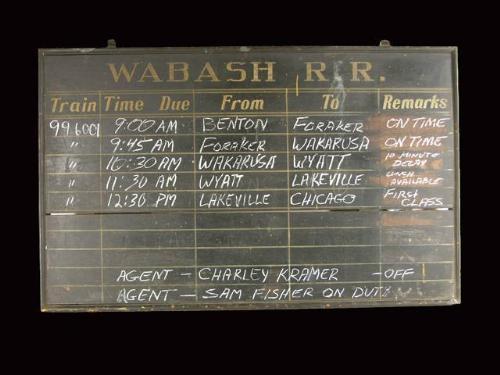 WABASH R.R.
Train Time Due From To Remarks
996001 9:00 AM BENTON FORAKER ON TIME
" 9:45 AM FORAKER WAKARUSA ON TIME
" 10:30 AM WAKARUSA WYATT 10 MINUTE DELAY
" 11:30 AM WYATT LAKEVILLE LUNCH AVAILABLE
" 12:30 PM LAKEVILLE CHICAGO FIRST CLASS
AGENT - CHARLEY KRAMER - OFF
AGENT - SAM FISHER ON DUTY